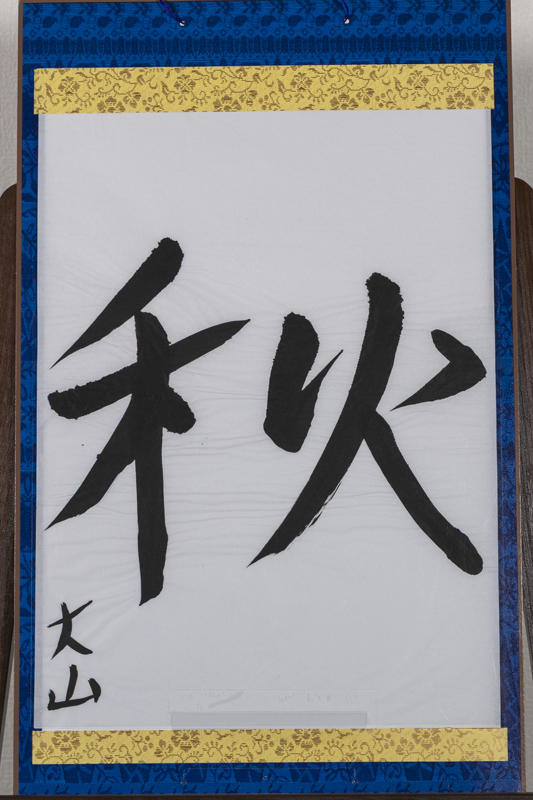 秋
大山